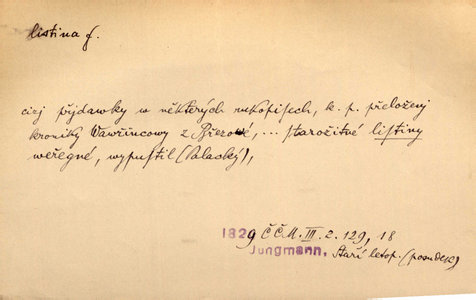 listina f.
cizj přjdawky w některých rukopisech, k. p. přeloženj
kroniky Wawřincowy z Březowé, ... starožitné listiny
weřegné, wypustil (Palacký),
1829 ČČM. III. 2. 129, 18
Jungmann, Staří letop. (posudek)